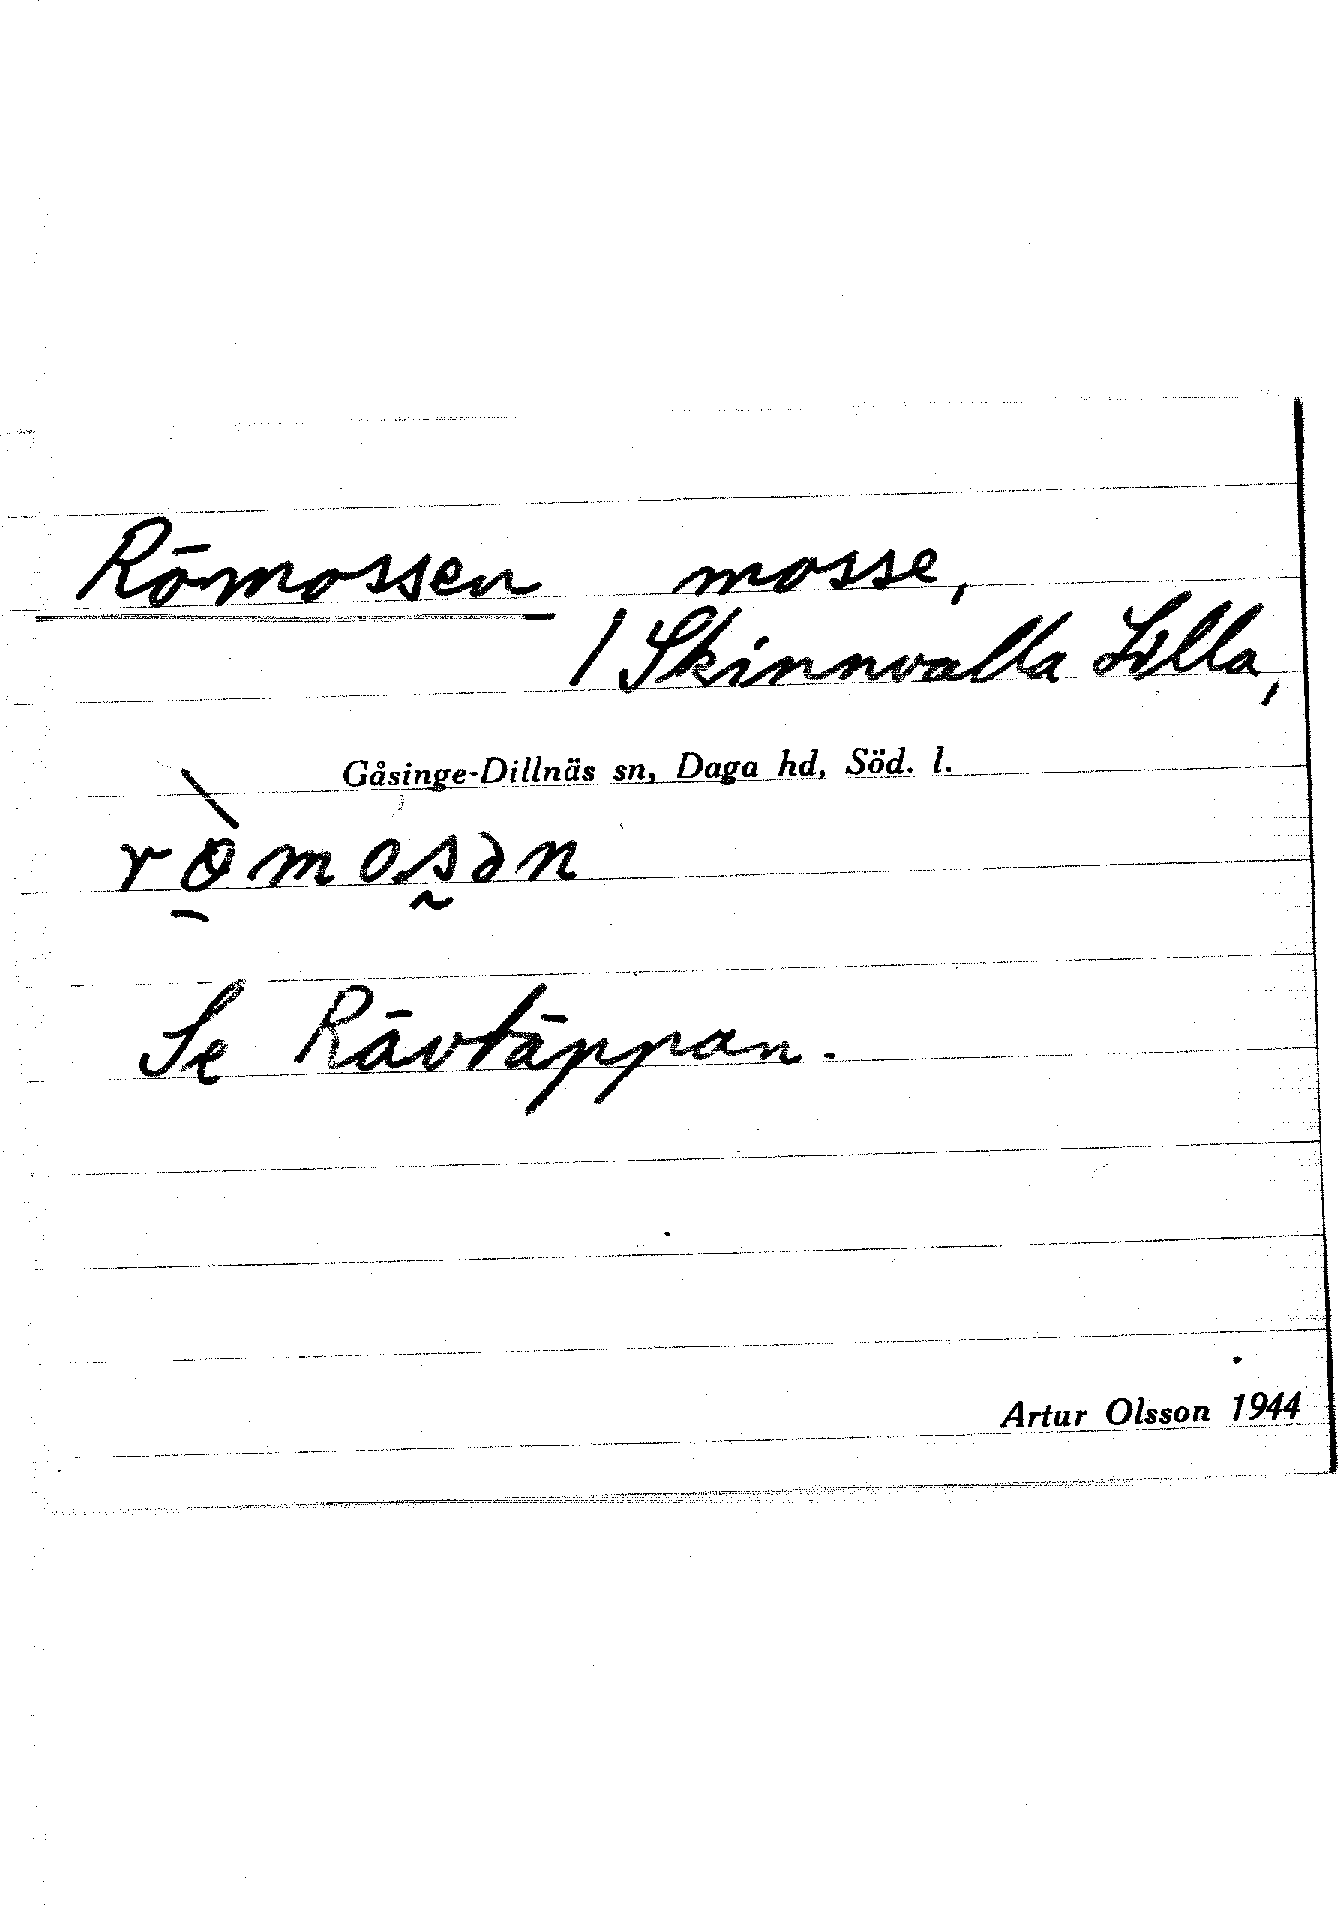 Römossen mosse,
/ Skinnvalla Lilla,
Gåsinge-Dillnäs sn, Daga hd, Söd. l.
rò̱mos̰ən
Se Rävtäppan.
Artur Olsson 1944